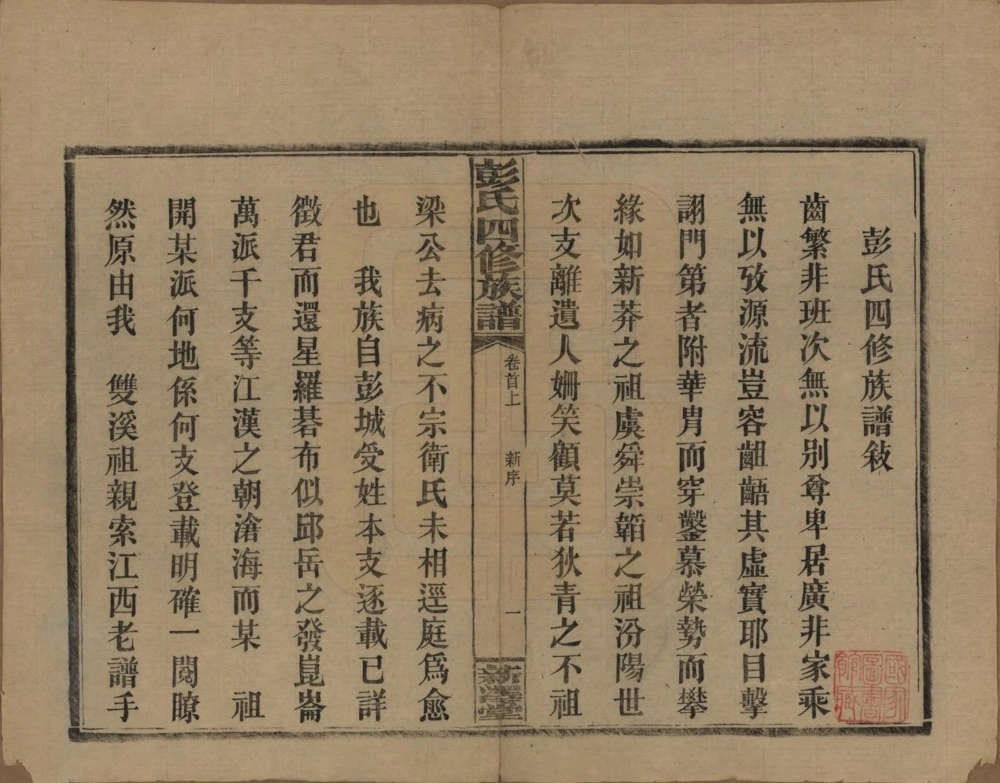 彭氏四修族譜敍
齒繁非班次無以別尊卑居廣非家乘
無以攷源流豈容齟齬其虛實耶目擊
詡門第者附華胄而穿鑿慕榮勢而攀
緣如新莽之祖虞舜崇韜之祖汾陽世
次支離遺人姍笑顧莫若狄青之不祖
彭氏四修族譜
卷首上
新序
一
堂
梁公去病之不宗衛氏未相逕庭爲愈
也　我族自彭城受姓本支逐載已詳
徵君而還星羅碁布似邱岳之發崑崙
萬派千支等江漢之朝滄海而某　祖
開某派何地係何支登載明確一閱瞭
然原由我　雙溪祖親索江西老譜手